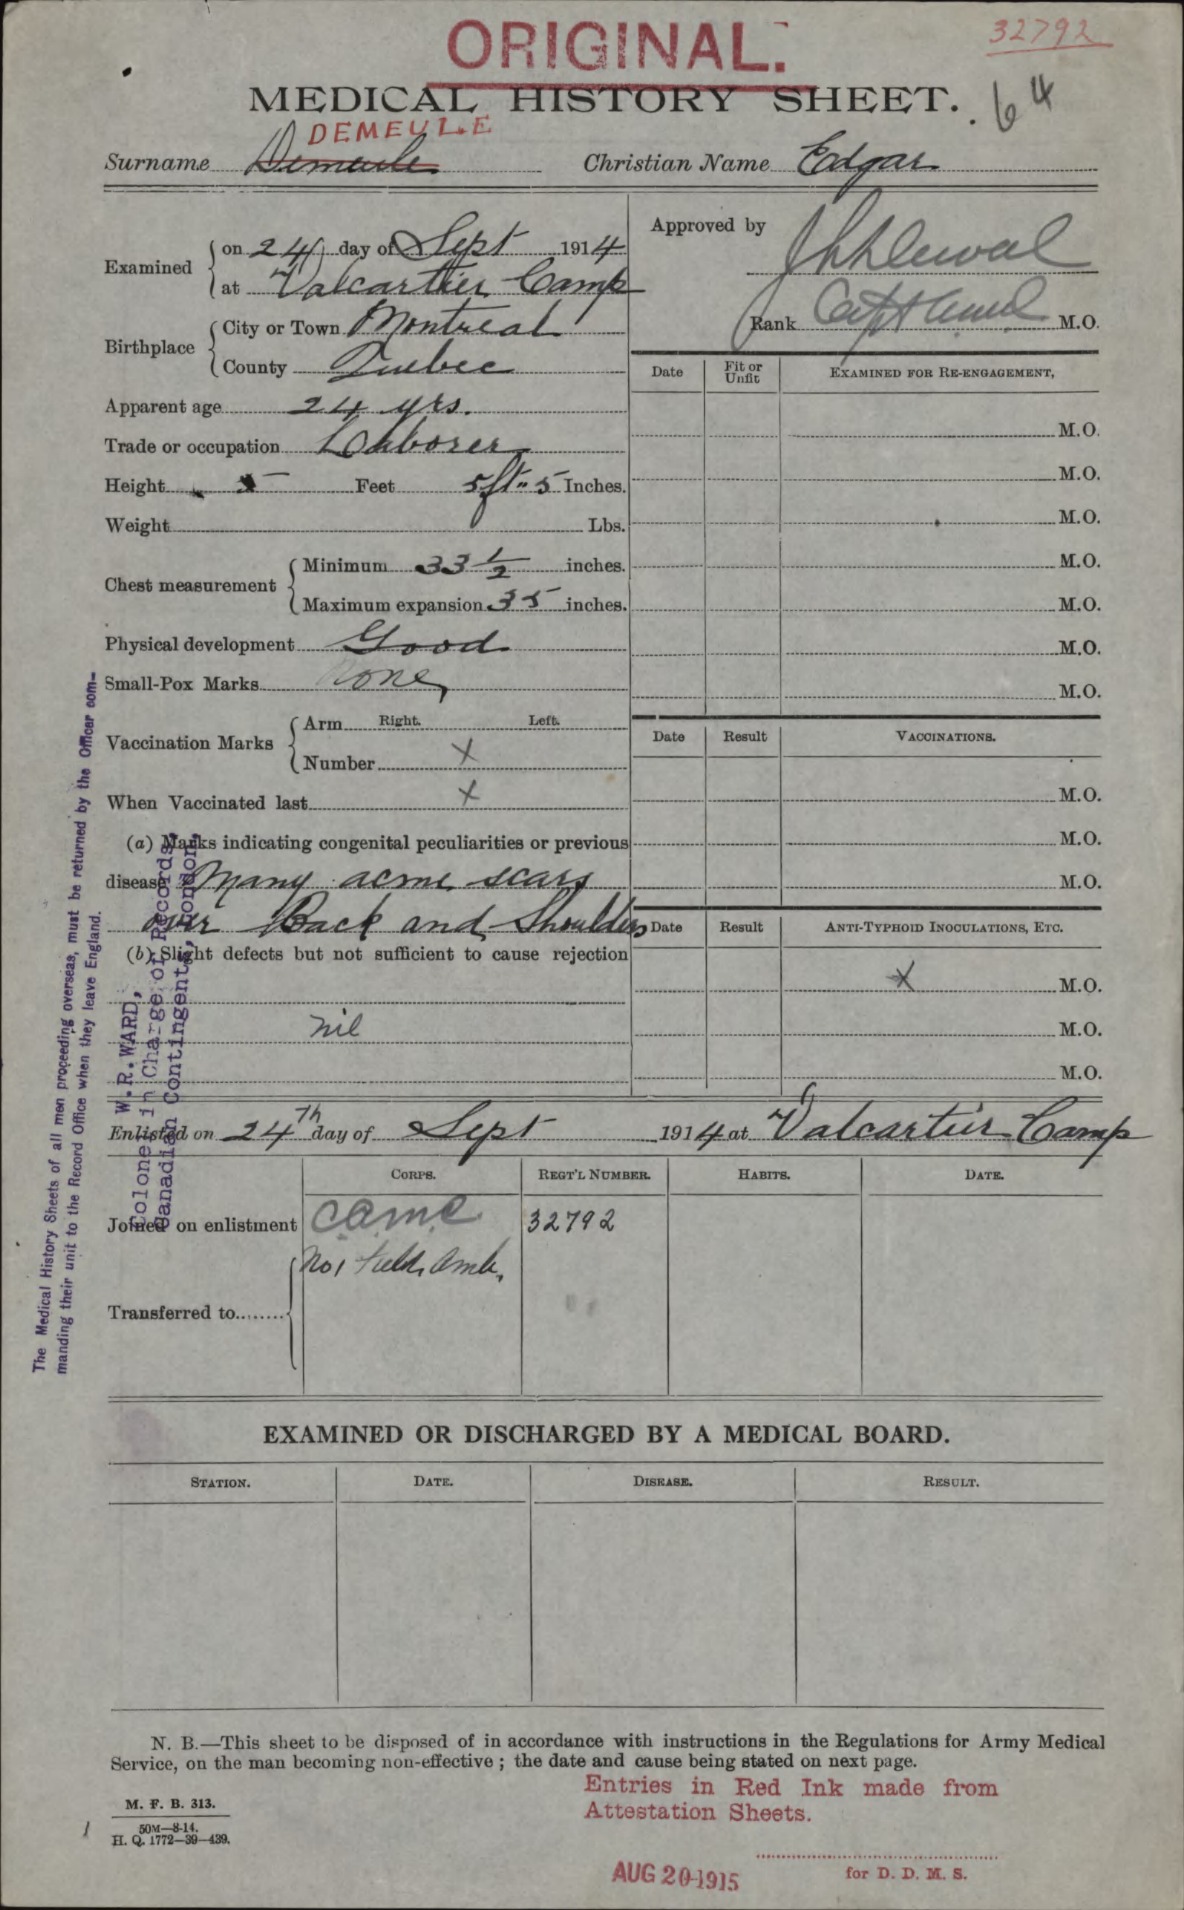 ORIGINAL.
32792
MEDICAL HISTORY SHEET. 64
DEMEULE
Surname Demeule Christian Name Edgar
Examined on 24 day of Sept 1914
at Valcartier Camp
Birthplace City or Town Montreal
County Quebec
Apparent age 24 yrs.
Trade or occupation Laborer
Height 5 Feet 5ft" 5 Inches.
Weight Lbs.
Chest measurement Minimum 33 1/2 inches.
Maximum expansion 35 inches.
Physical development Good
Small-Pox Marks none
Vaccination Marks Arm Right. Left.
Number X
When Vaccinated last X
(a) Marks indicating congenital peculiarities or previous
disease Many acme scars
over Back and Shoulders
(b) Slight defects but not sufficient to cause rejection
nil
Approved by
Rank Capt M.O.
Date Fit or Unfit EXAMINED FOR RE-ENGAGEMENT,
M.O.
M.O.
M.O.
M.O.
M.O.
M.O.
M.O.
Date Result VACCINATIONS.
M.O.
M.O.
M.O.
Date Result ANTI-TYPHOID INOCULATIONS, ETC.
X M.O.
M.O.
M.O.
Enlisted on 24th day of Sept 1914 at Valcartier Camp
CORPS. REGT'L NUMBER. HABITS. DATE.
Joined on enlistment C.A.M.C 32792
No 1 Field. Amb.
Transferred to
The Medical History Sheets of all men proceeding overseas, must be returned by the Officer com-
manding their unit to the Record Office when they leave England.
W.R.WARD,
Colonel in Charge of Records,
Canadian Contingents, London,
EXAMINED OR DISCHARGED BY A MEDICAL BOARD.
STATION. DATE. DISEASE. RESULT.
N. B.—This sheet to be disposed of in accordance with instructions in the Regulations for Army Medical
Service, on the man becoming non-effective ; the date and cause being stated on next page.
Entries in Red Ink made from
Attestation Sheets.
M. F. B. 313.
50M—8-14.
H. Q. 1772—39—439.
AUG 20 1915
for D. D. M. S.